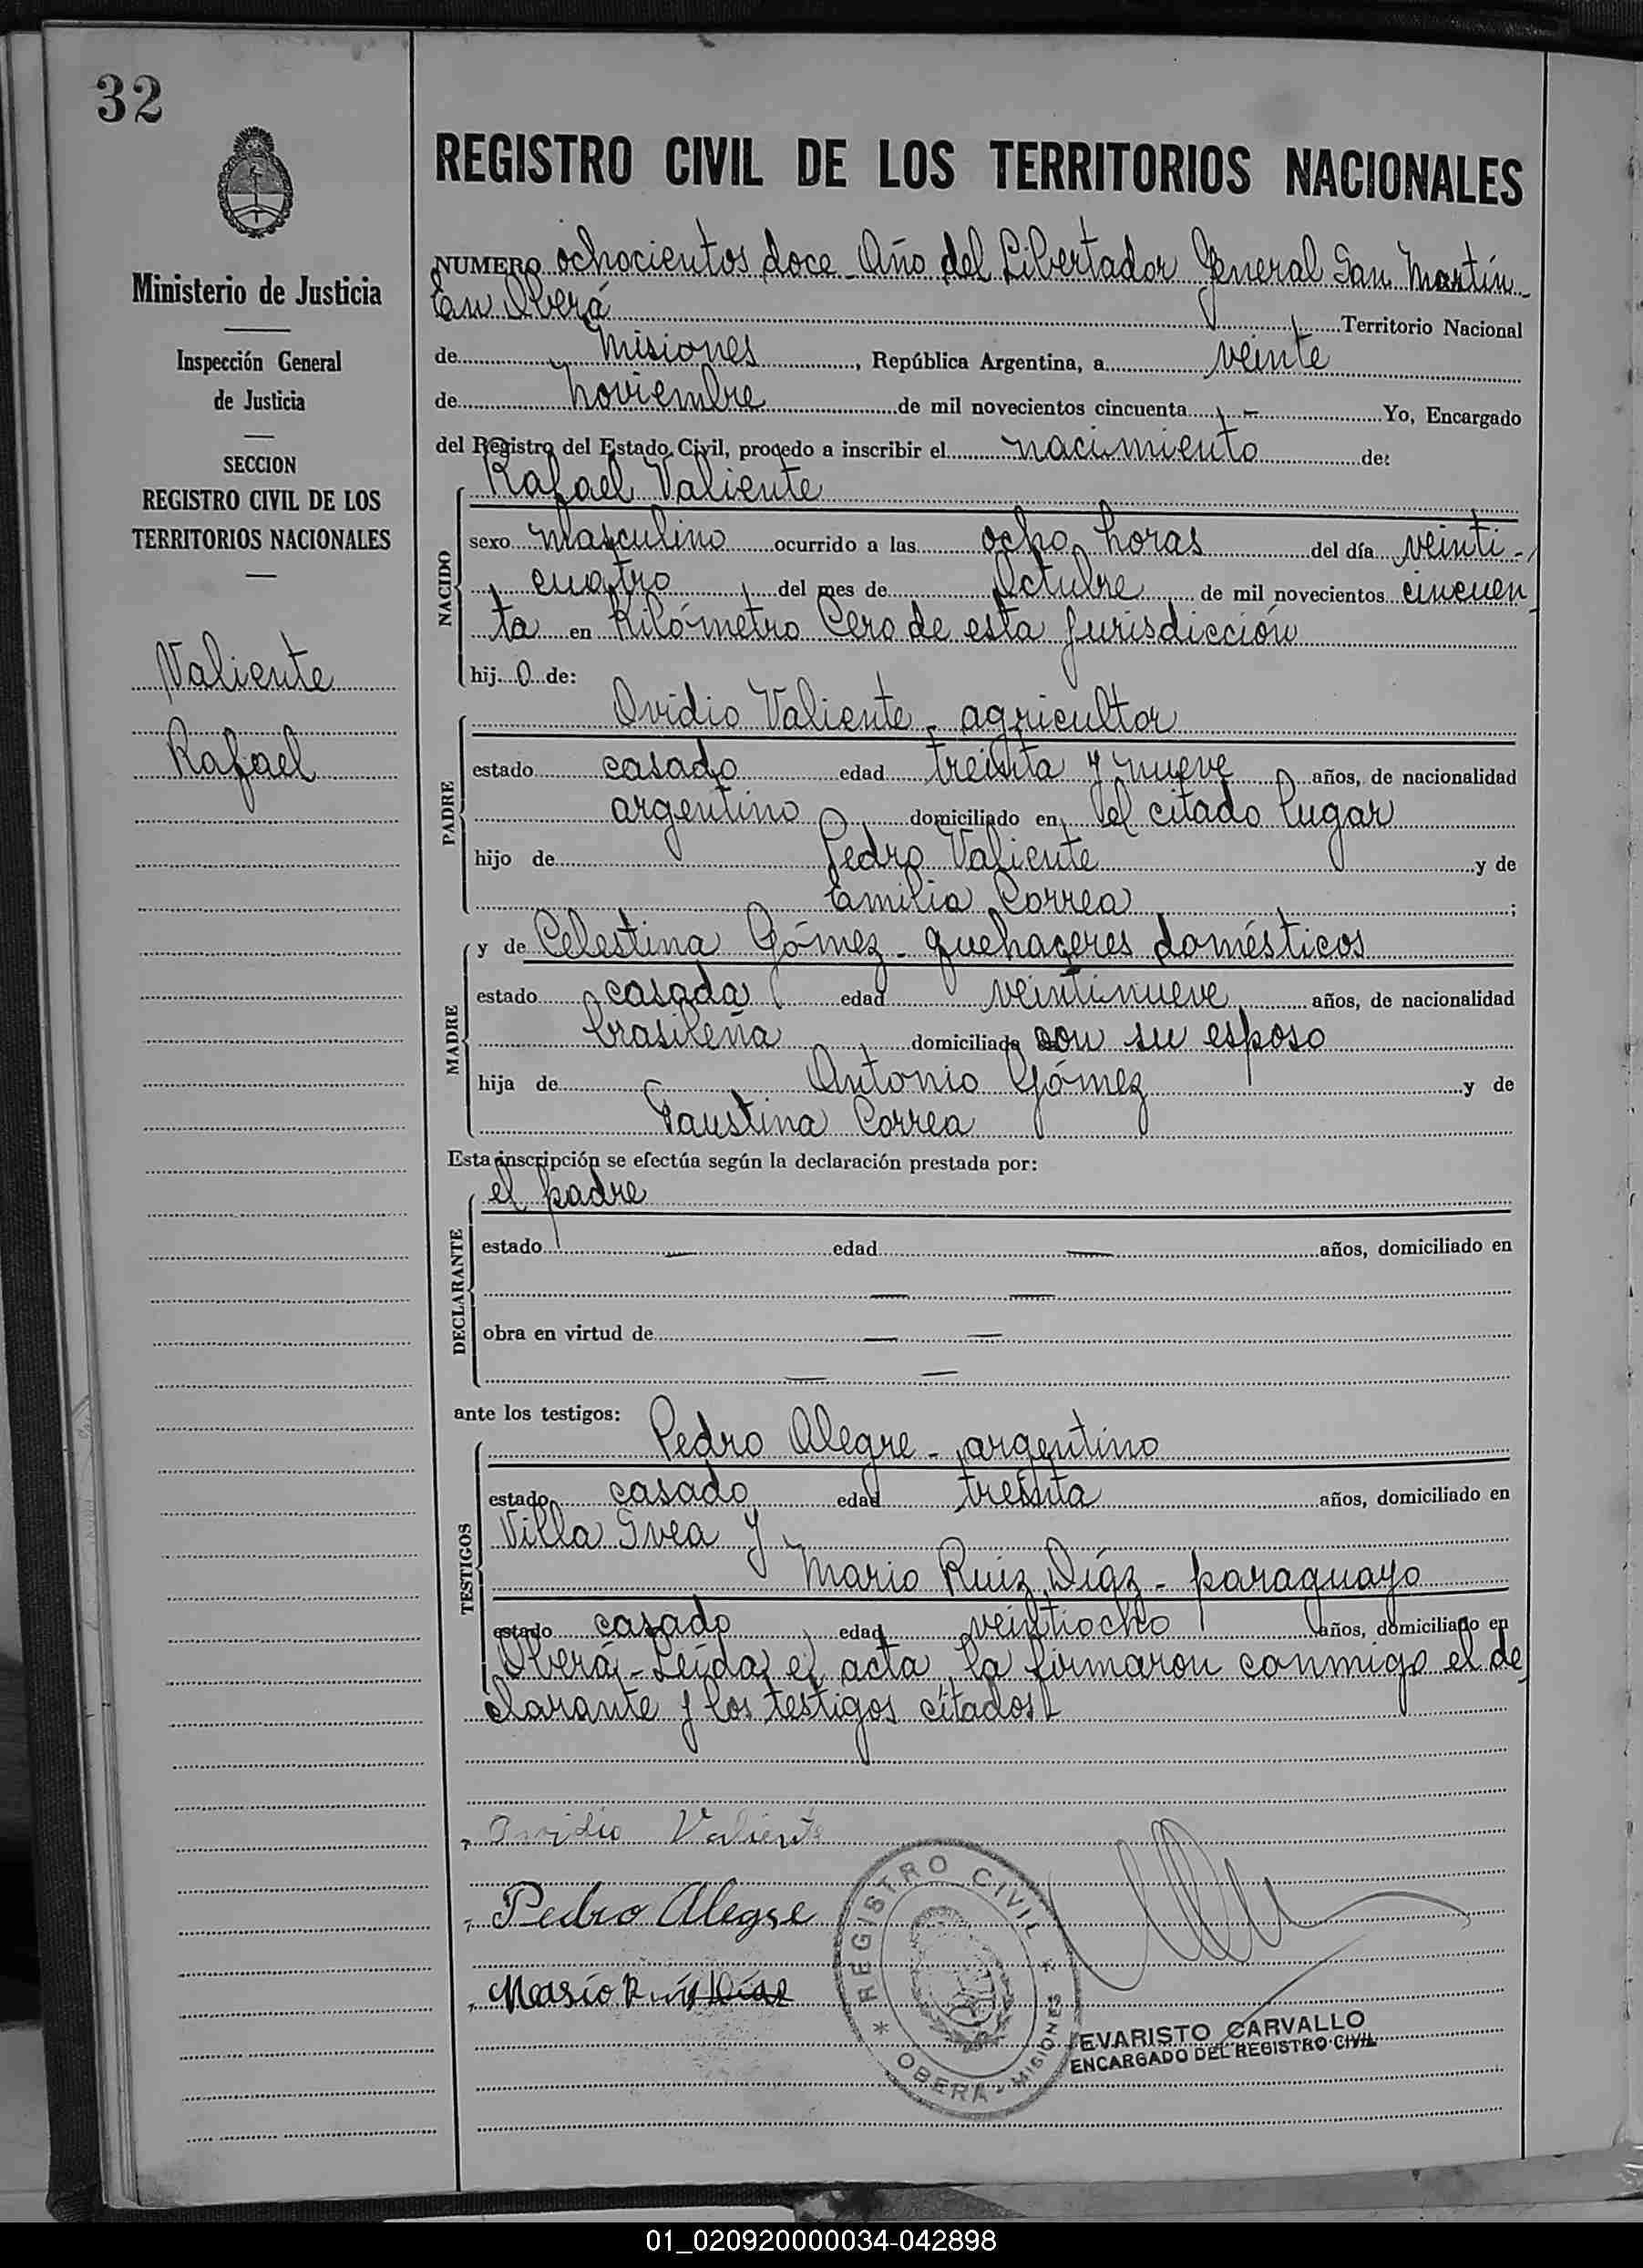 32
REGISTRO CIVIL DE LOS TERRITORIOS NACIONALES
Ministerio de Justicia
Inspección General
de Justicia
SECCION
REGISTRO CIVIL DE LOS
TERRITORIOS NACIONALES
Valiente
Rafael
NUMERO ochocientos doce - Año del Libertador General San Martín -
En Oberá Territorio Nacional
de Misiones, República Argentina, a veinte
de Noviembre de mil novecientos cincuenta - Yo, Encargado
del Registro del Estado Civil, procedo a inscribir el nacimiento de:
Rafael Valiente
NACIDO
sexo masculino ocurrido a las ocho horas del día veinti-
cuatro del mes de Octubre de mil novecientos cincuen
ta en Kilómetro Cero de esta jurisdicción
hij o de:
Ovidio Valiente - agricultor
PADRE
estado casado edad treinta y nueve años, de nacionalidad
argentino domiciliado en el citado lugar
hijo de Pedro Valiente y de
Emilia Correa ;
y de Celestina Gómez - quehaceres domésticos
MADRE
estado casada edad veintinueve años, de nacionalidad
brasileña domiciliada con su esposo
hija de Antonio Gómez y de
Faustina Correa
Esta inscripción se efectúa según la declaración prestada por:
el padre
DECLARANTE
estado — edad — años, domiciliado en
— —
obra en virtud de — —
— —
ante los testigos:
Pedro Alegre - argentino
TESTIGOS
estado casado edad treinta años, domiciliado en
Villa Svea y
Mario Ruiz Díaz - paraguayo
estado casado edad veintiocho años, domiciliado en
Oberá - Leída el acta la firmaron conmigo el de
clarante y los testigos citados
Ovidio Valiente
Pedro Alegre
Mario Ruiz Díaz
REGISTRO CIVIL
* OBERA - MISIONES *
EVARISTO CARVALLO
ENCARGADO DEL REGISTRO CIVIL
01_020920000034-042898